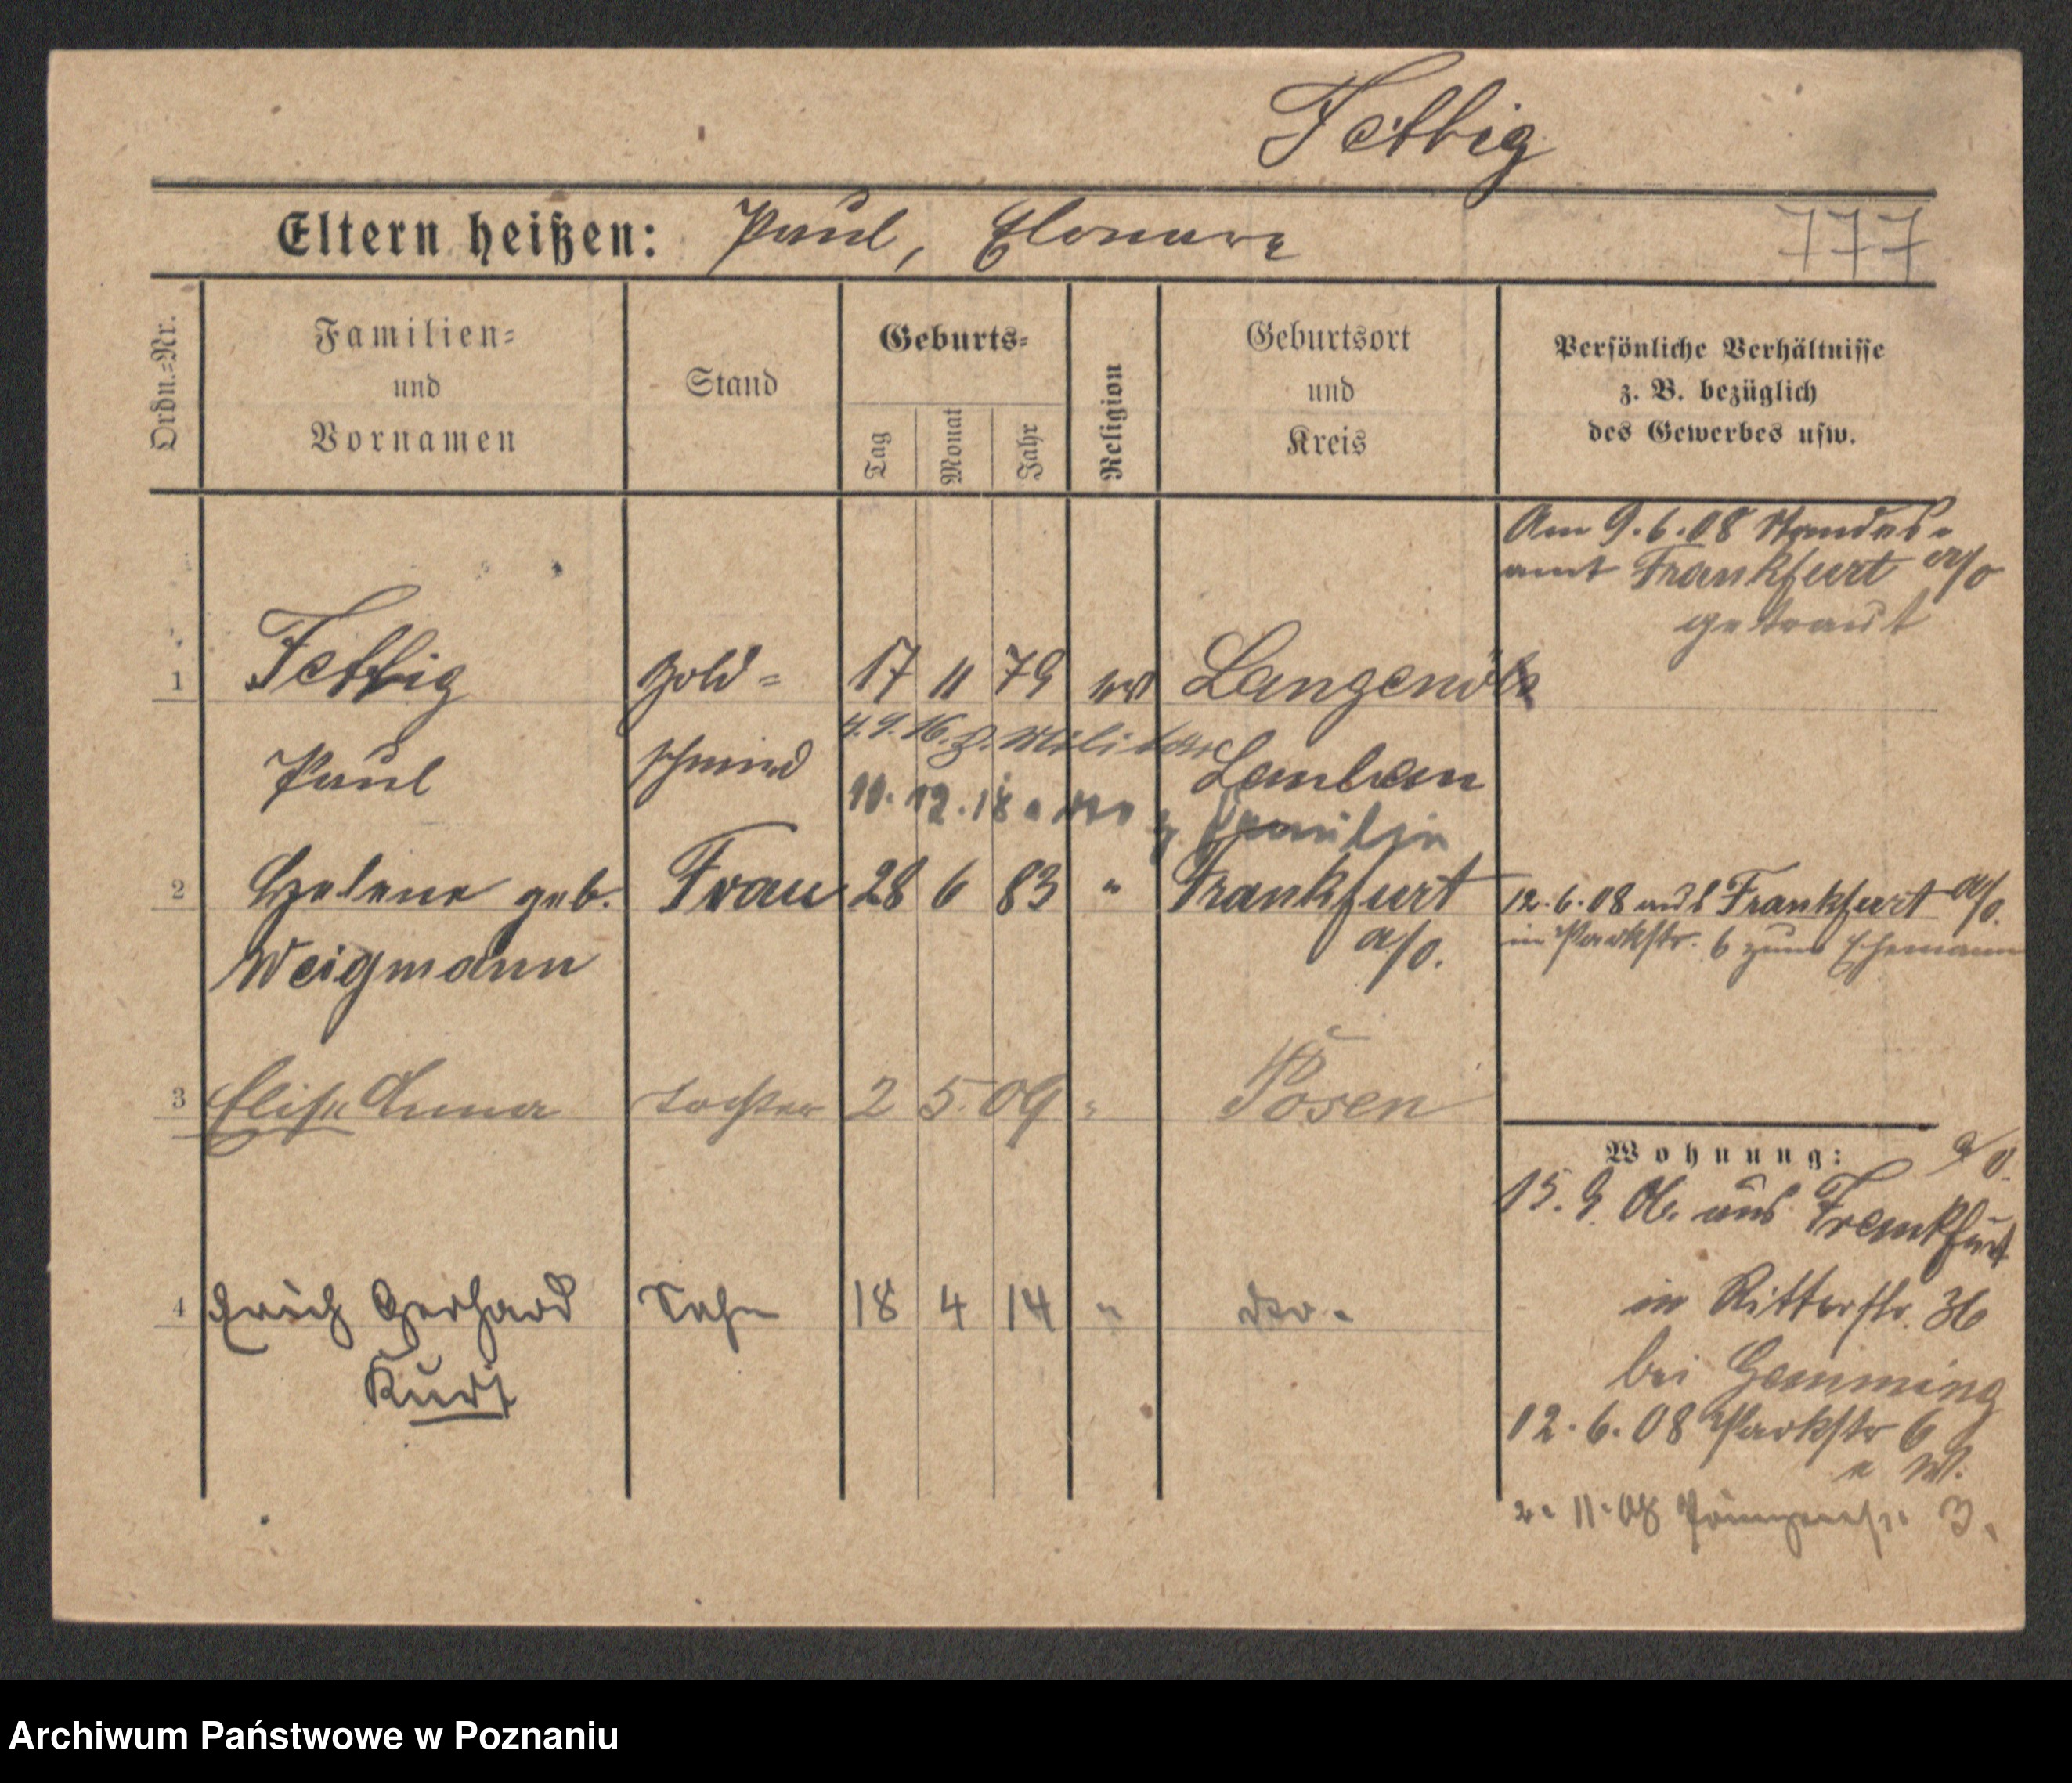 Fettig
Eltern heißen: Paul, Elonore
777
Ordn.-Nr.
Familien- und Vornamen
Stand
Geburts-
Tag
Monat
Jahr
Religion
Geburtsort und Kreis
Persönliche Verhältnisse
z. B. bezüglich
des Gewerbes usw.
Am 9.6.08 Standes-
amt Frankfurt a/o
getraut
1 Fettig Gold= 17 11 79 ev Langenöls
4.9.16. z. Militär
Paul schmied Lauban
10.12.18
2 Helene geb. Frau 28 6 83 " Frankfurt
a/o.
Weigmann
12.6.08 aus Frankfurt a/o.
in Parkstr. 6 zum Ehemann
3 Elise Anna Tochter 2 5 09 " Posen
4 Erich Gerhard Sohn 18 4 14 " dto.
Kurt
Wohnung:
a/o.
15. 9. 06. aus Frankfurt
in Ritterstr. 36
bei
12.6.08 Parkstr 6
2.11.08 3.
Archiwum Państwowe w Poznaniu